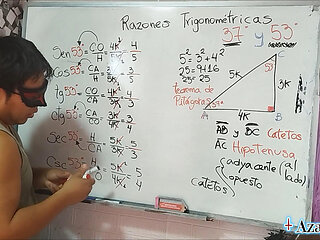 Razones Trigonométricas
37° y 53°
Sen 53° = CO/H = 4K/5K = 4/5
Cos 53° = CA/H = 3K/5K = 3/5
tg 53° = CO/CA = 4K/3K = 4/3
ctg 53° = CA/CO = 3K/4K = 3/4
Sec 53° = H/CA = 5K/3K = 5/3
Csc 53° = H/CO = 5K/4K = 5/4
5² = 3² + 4²
25 = 9+16
25 = 25
teorema de
Pitágoras
5K
3K
4K
A
B
C
AB y BC Catetos
AC Hipotenusa
Catetos
adyacente (al lado)
opuesto
Aza